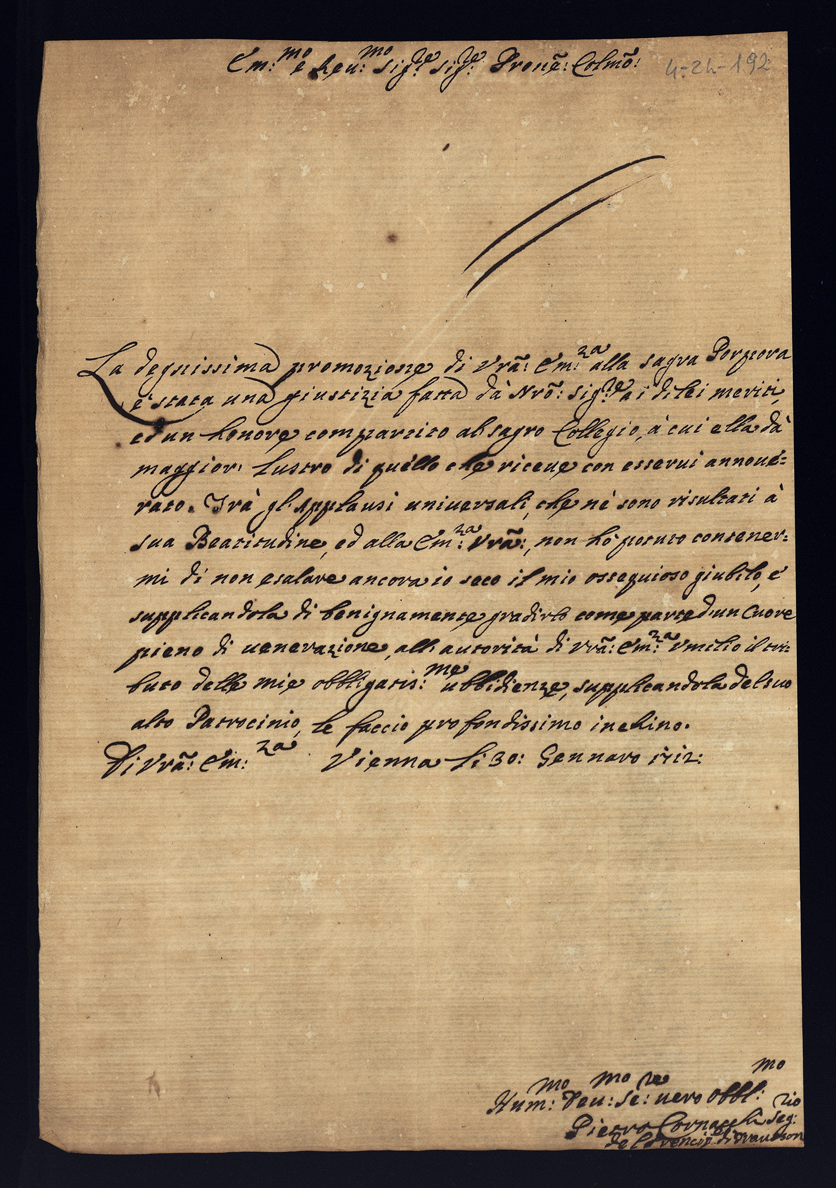 Em:mo e Reu:mo Sig:re Sig:re Pronẽ: Colmõ:
4-24-192
La degnissima promozione di Vrã: Em:za alla sagra Porpora
e' stata una giustizia fatta dà Nrõ: Sig:re ai di lei meriti,
ed un honore compartito al sagro Collegio, à cui ella dà
maggior lustro di quello che riceue con esserui annoue=
rato. Trà gl'Applausi uniuersali, che ne sono risultati à
sua Beatitudine, ed alla Em:za Vrã:, non hò potuto contener=
mi di non esalare ancora io seco il mio ossequioso giubilo, e
supplicandola di benignamente gradirlo come parte d'un Cuore
pieno di uenerazione, all'autorità di Vrã: Em:za Vmilio il tri
buto delle mie obbligatis:me ubbidienze, supplicandola del suo
alto Patrocinio, le faccio profondissimo inchino.
Di Vrã: Em:za Vienna li 30: Gennaro 1712:
Hum:mo Deu:mo Se:re uero Obbl:mo
Pietro Seg:rio